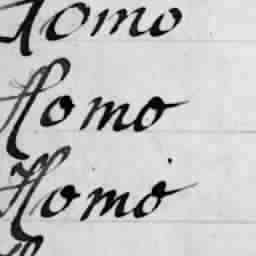 Homo
Homo
Homo